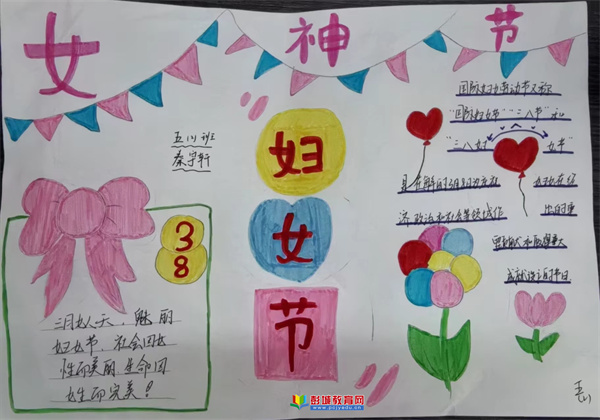 女神节
五(1)班
秦宇轩
妇
女
节
3
8
三月女人天,魅丽
妇女节,社会因女
性而美丽 生命因
女性而完美!
国际妇女劳动节又称
"国际妇女节""三八节"和
"三八妇女节"
是在每年的3月8日为庆祝
妇女在经
济 政治和社会等领域作
出的重
要贡献和取得重大
成就设立的节日
彭城教育网
www.pcjyedu.cn